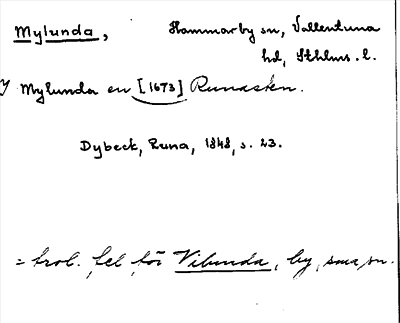 Mylunda, Hammarby sn, Vallentuna
hd, Sthlms. l.
y Mylunda en [1673] Runasten.
Dybeck, Runa, 1848, s. 23.
= trol. fel för Vibunda, by, sma sn.